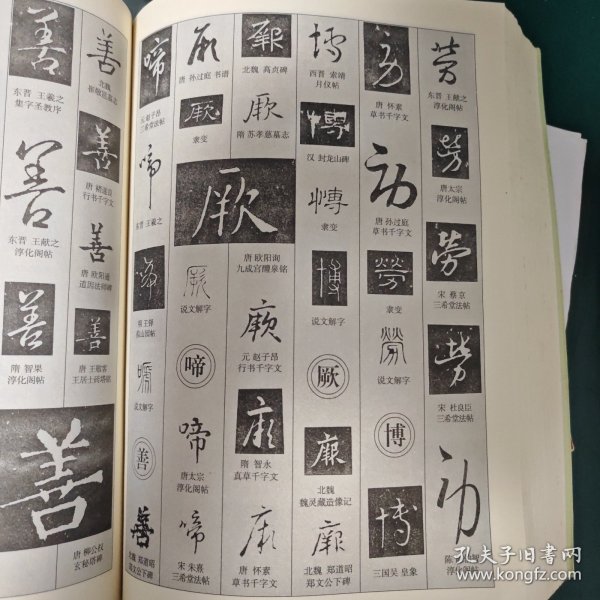 善
东晋 王羲之
集字圣教序
善
东晋 王献之
淳化阁帖
善
隋 智果
淳化阁帖
善
唐 柳公权
玄秘塔碑
善
北魏
善
唐 褚遂良
行书千字文
善
唐 欧阳通
道因法师碑
善
唐 王敬客
王居士砖塔铭
啼
元 赵子昂
三希堂法帖
啼
东晋 王羲之
啼
说文解字
善
善
北魏 郑道昭
郑文公下碑
厥
唐 孙过庭 书谱
厥
隶变
厥
唐 欧阳询
九成宫醴泉铭
说文解字
啼
啼
唐太宗
淳化阁帖
啼
宋 朱熹
三希堂法帖
厥
北魏 高贞碑
厥
隋 苏孝慈墓志
厥
元 赵子昂
行书千字文
厥
隋 智永
真草千字文
厥
唐 怀素
草书千字文
博
西晋 索靖
月仪帖
博
汉 封龙山碑
博
隶变
博
说文解字
厥
厥
北魏
魏灵藏造像记
厥
北魏 郑道昭
郑文公下碑
劳
唐 怀素
草书千字文
劳
唐 孙过庭
草书千字文
劳
隶变
劳
说文解字
博
博
三国吴 皇象
劳
东晋 王献之
淳化阁帖
劳
唐太宗
淳化阁帖
劳
宋 蔡京
三希堂法帖
劳
宋 杜良臣
三希堂法帖
劳
淳化阁帖
孔夫子旧书网
www.kongfz.com